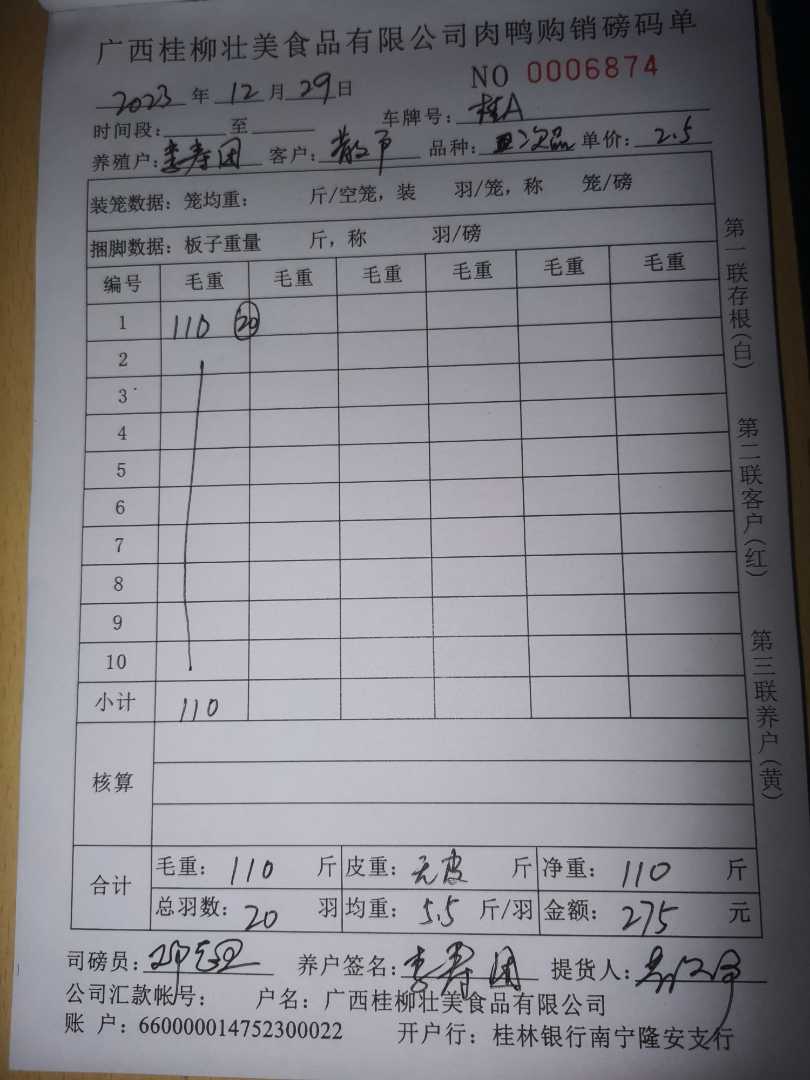 广西桂柳壮美食品有限公司肉鸭购销磅码单
NO 0006874
2023 年 12 月 29 日
时间段: 至 车牌号: 桂A
养殖户: 李寿团 客户: 散户 品种: 次品 单价: 2.5
装笼数据: 笼均重: 斤/空笼, 装 羽/笼, 称 笼/磅
捆脚数据: 板子重量 斤, 称 羽/磅
编号 毛重 毛重 毛重 毛重 毛重 毛重
1 110 20
2
3
4
5
6
7
8
9
10
小计 110
核算
合计 毛重: 110 斤 皮重: 无皮 斤 净重: 110 斤
总羽数: 20 羽 均重: 5.5 斤/羽 金额: 275 元
司磅员: 养户签名: 李寿团 提货人:
公司汇款帐号: 户名: 广西桂柳壮美食品有限公司
账 户: 660000014752300022 开户行: 桂林银行南宁隆安支行
第一联存根(白) 第二联客户(红) 第三联养户(黄)